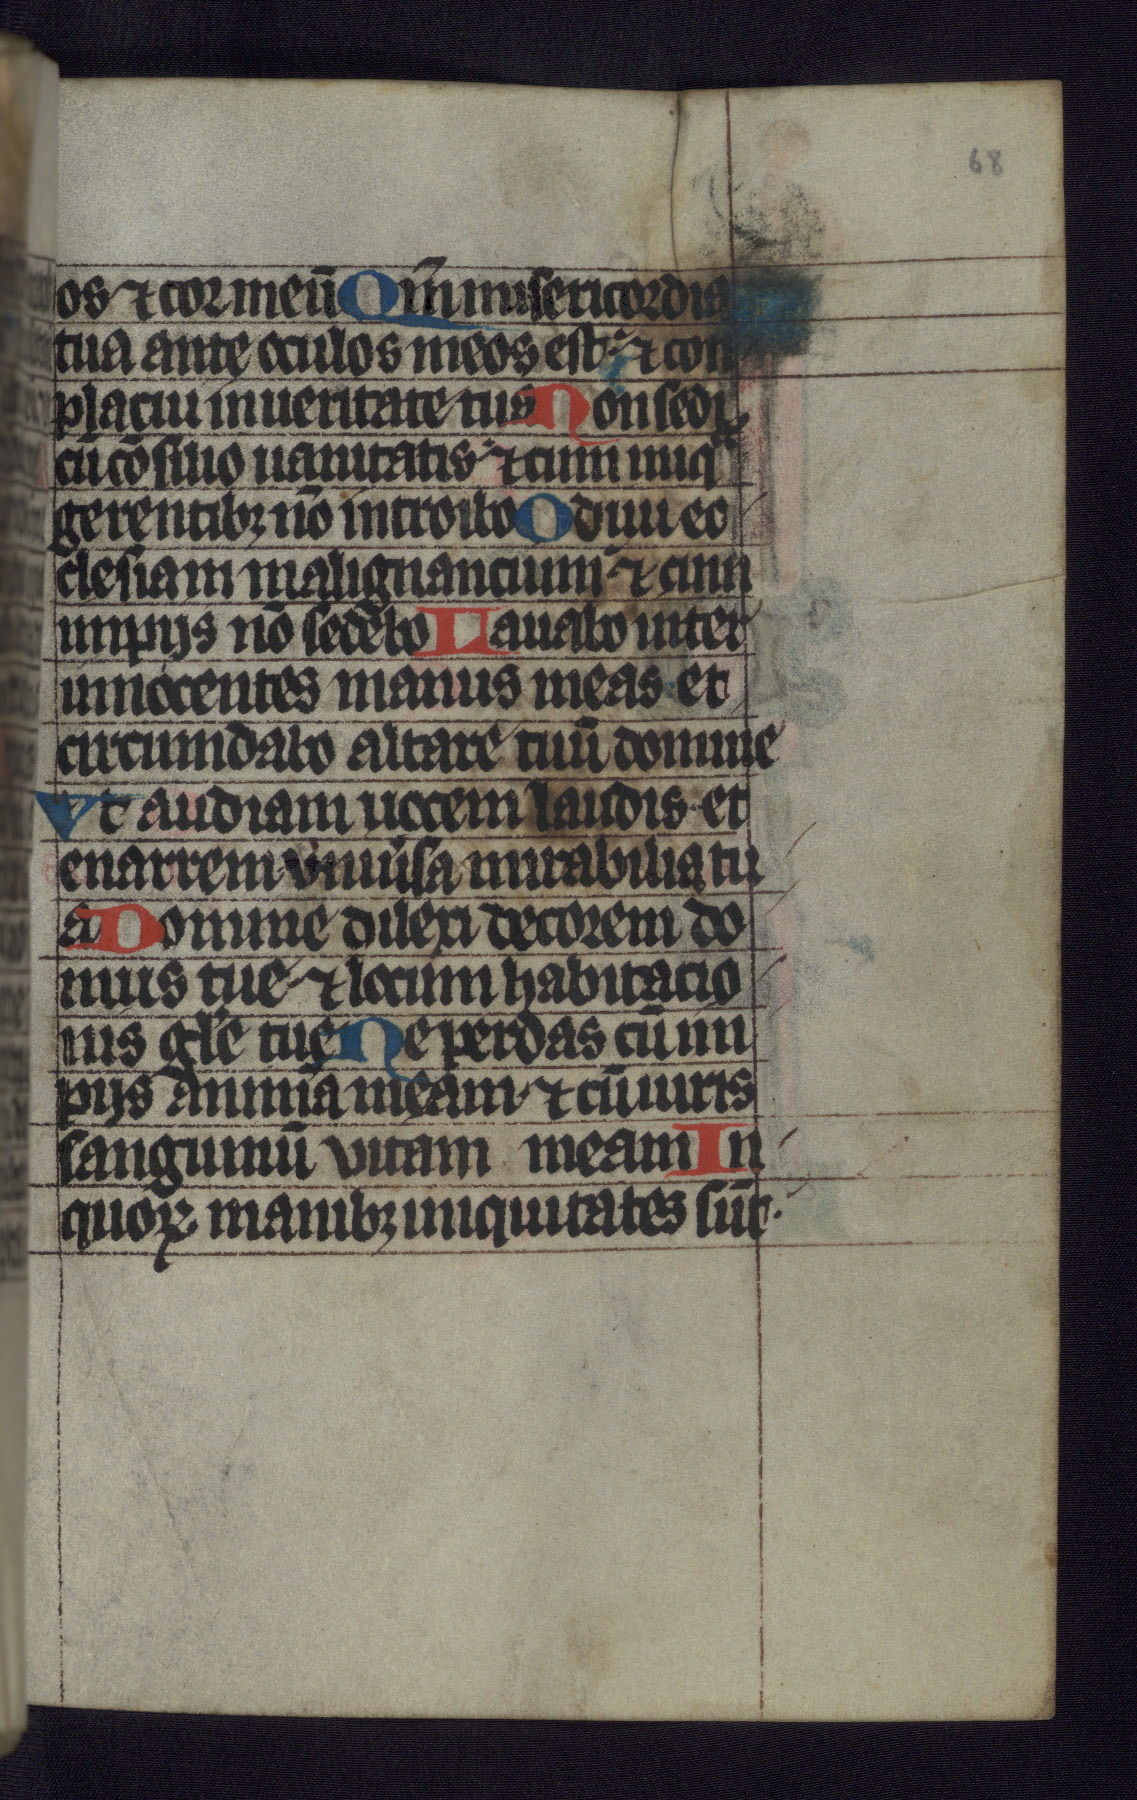 68
os ⁊ cor meū Qm̄ misericordia
tua ante oculos meos est ⁊ con
placui in ueritate tua Non sedi
cū cōsilio uanitatis ⁊ cum iniq
gerentibꝫ nō introibo Odiui ec
clesiam malignancium ⁊ cum
impijs nō sedebo Lauabo inter
innocentes manus meas et
circumdabo altare tuū domine
Vt audiam uocem laudis et
enarrem vniu̾sa mirabilia tu
a Domine dilexi decorem do
mus tue ⁊ locum habitacio
nis gl̄e tue Ne perdas cū im
pijs animā meam ⁊ cū uiris
sanguinū vitam meam In
quoꝝ manibꝫ iniquitates sūt.